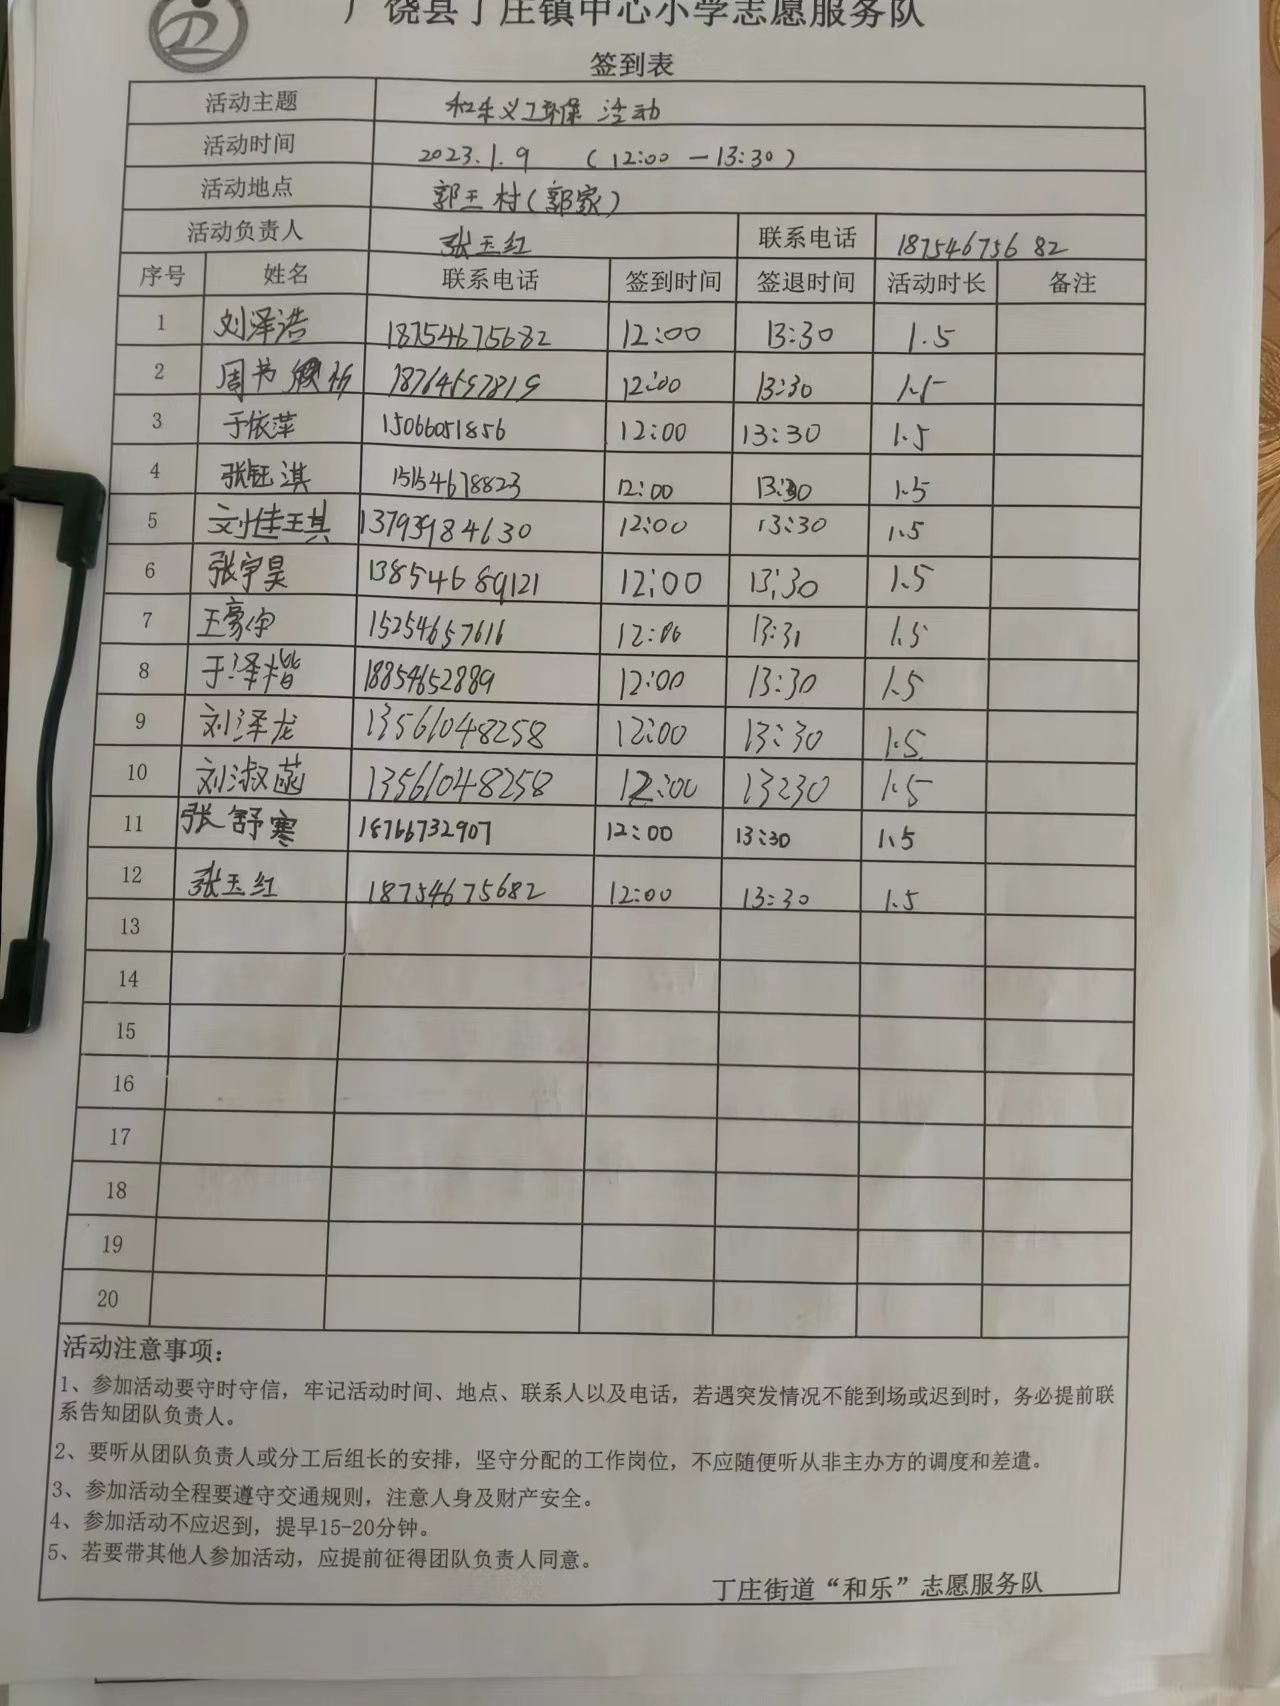 广饶县丁庄镇中心小学志愿服务队
签到表
活动主题 和乐义工环保 活动
活动时间 2023.1.9 (12:00 —13:30)
活动地点 郭王村(郭家)
活动负责人 张玉红 联系电话 18754675682
序号 姓名 联系电话 签到时间 签退时间 活动时长 备注
1 刘泽浩 18754675682 12:00 13:30 1.5
2 周书 12:00 13:30 1.5
3 于依萍 15066051856 12:00 13:30 1.5
4 张钰淇 15154678823 12:00 13:30 1.5
5 刘佳琪 13793984630 12:00 13:30 1.5
6 张宇昊 13854689121 12:00 13:30 1.5
7 王豪 15254657616 12:00 13:31 1.5
8 于泽楷 18854652889 12:00 13:30 1.5
9 刘泽龙 13561048258 12:00 13:30 1.5
10 刘淑菡 13561048258 12:00 13:30 1.5
11 张舒寒 18766732907 12:00 13:30 1.5
12 张玉红 18754675682 12:00 13:30 1.5
13
14
15
16
17
18
19
20
活动注意事项：
1、参加活动要守时守信，牢记活动时间、地点、联系人以及电话，若遇突发情况不能到场或迟到时，务必提前联
系告知团队负责人。
2、要听从团队负责人或分工后组长的安排，坚守分配的工作岗位，不应随便听从非主办方的调度和差遣。
3、参加活动全程要遵守交通规则，注意人身及财产安全。
4、参加活动不应迟到，提早15-20分钟。
5、若要带其他人参加活动，应提前征得团队负责人同意。
丁庄街道“和乐”志愿服务队